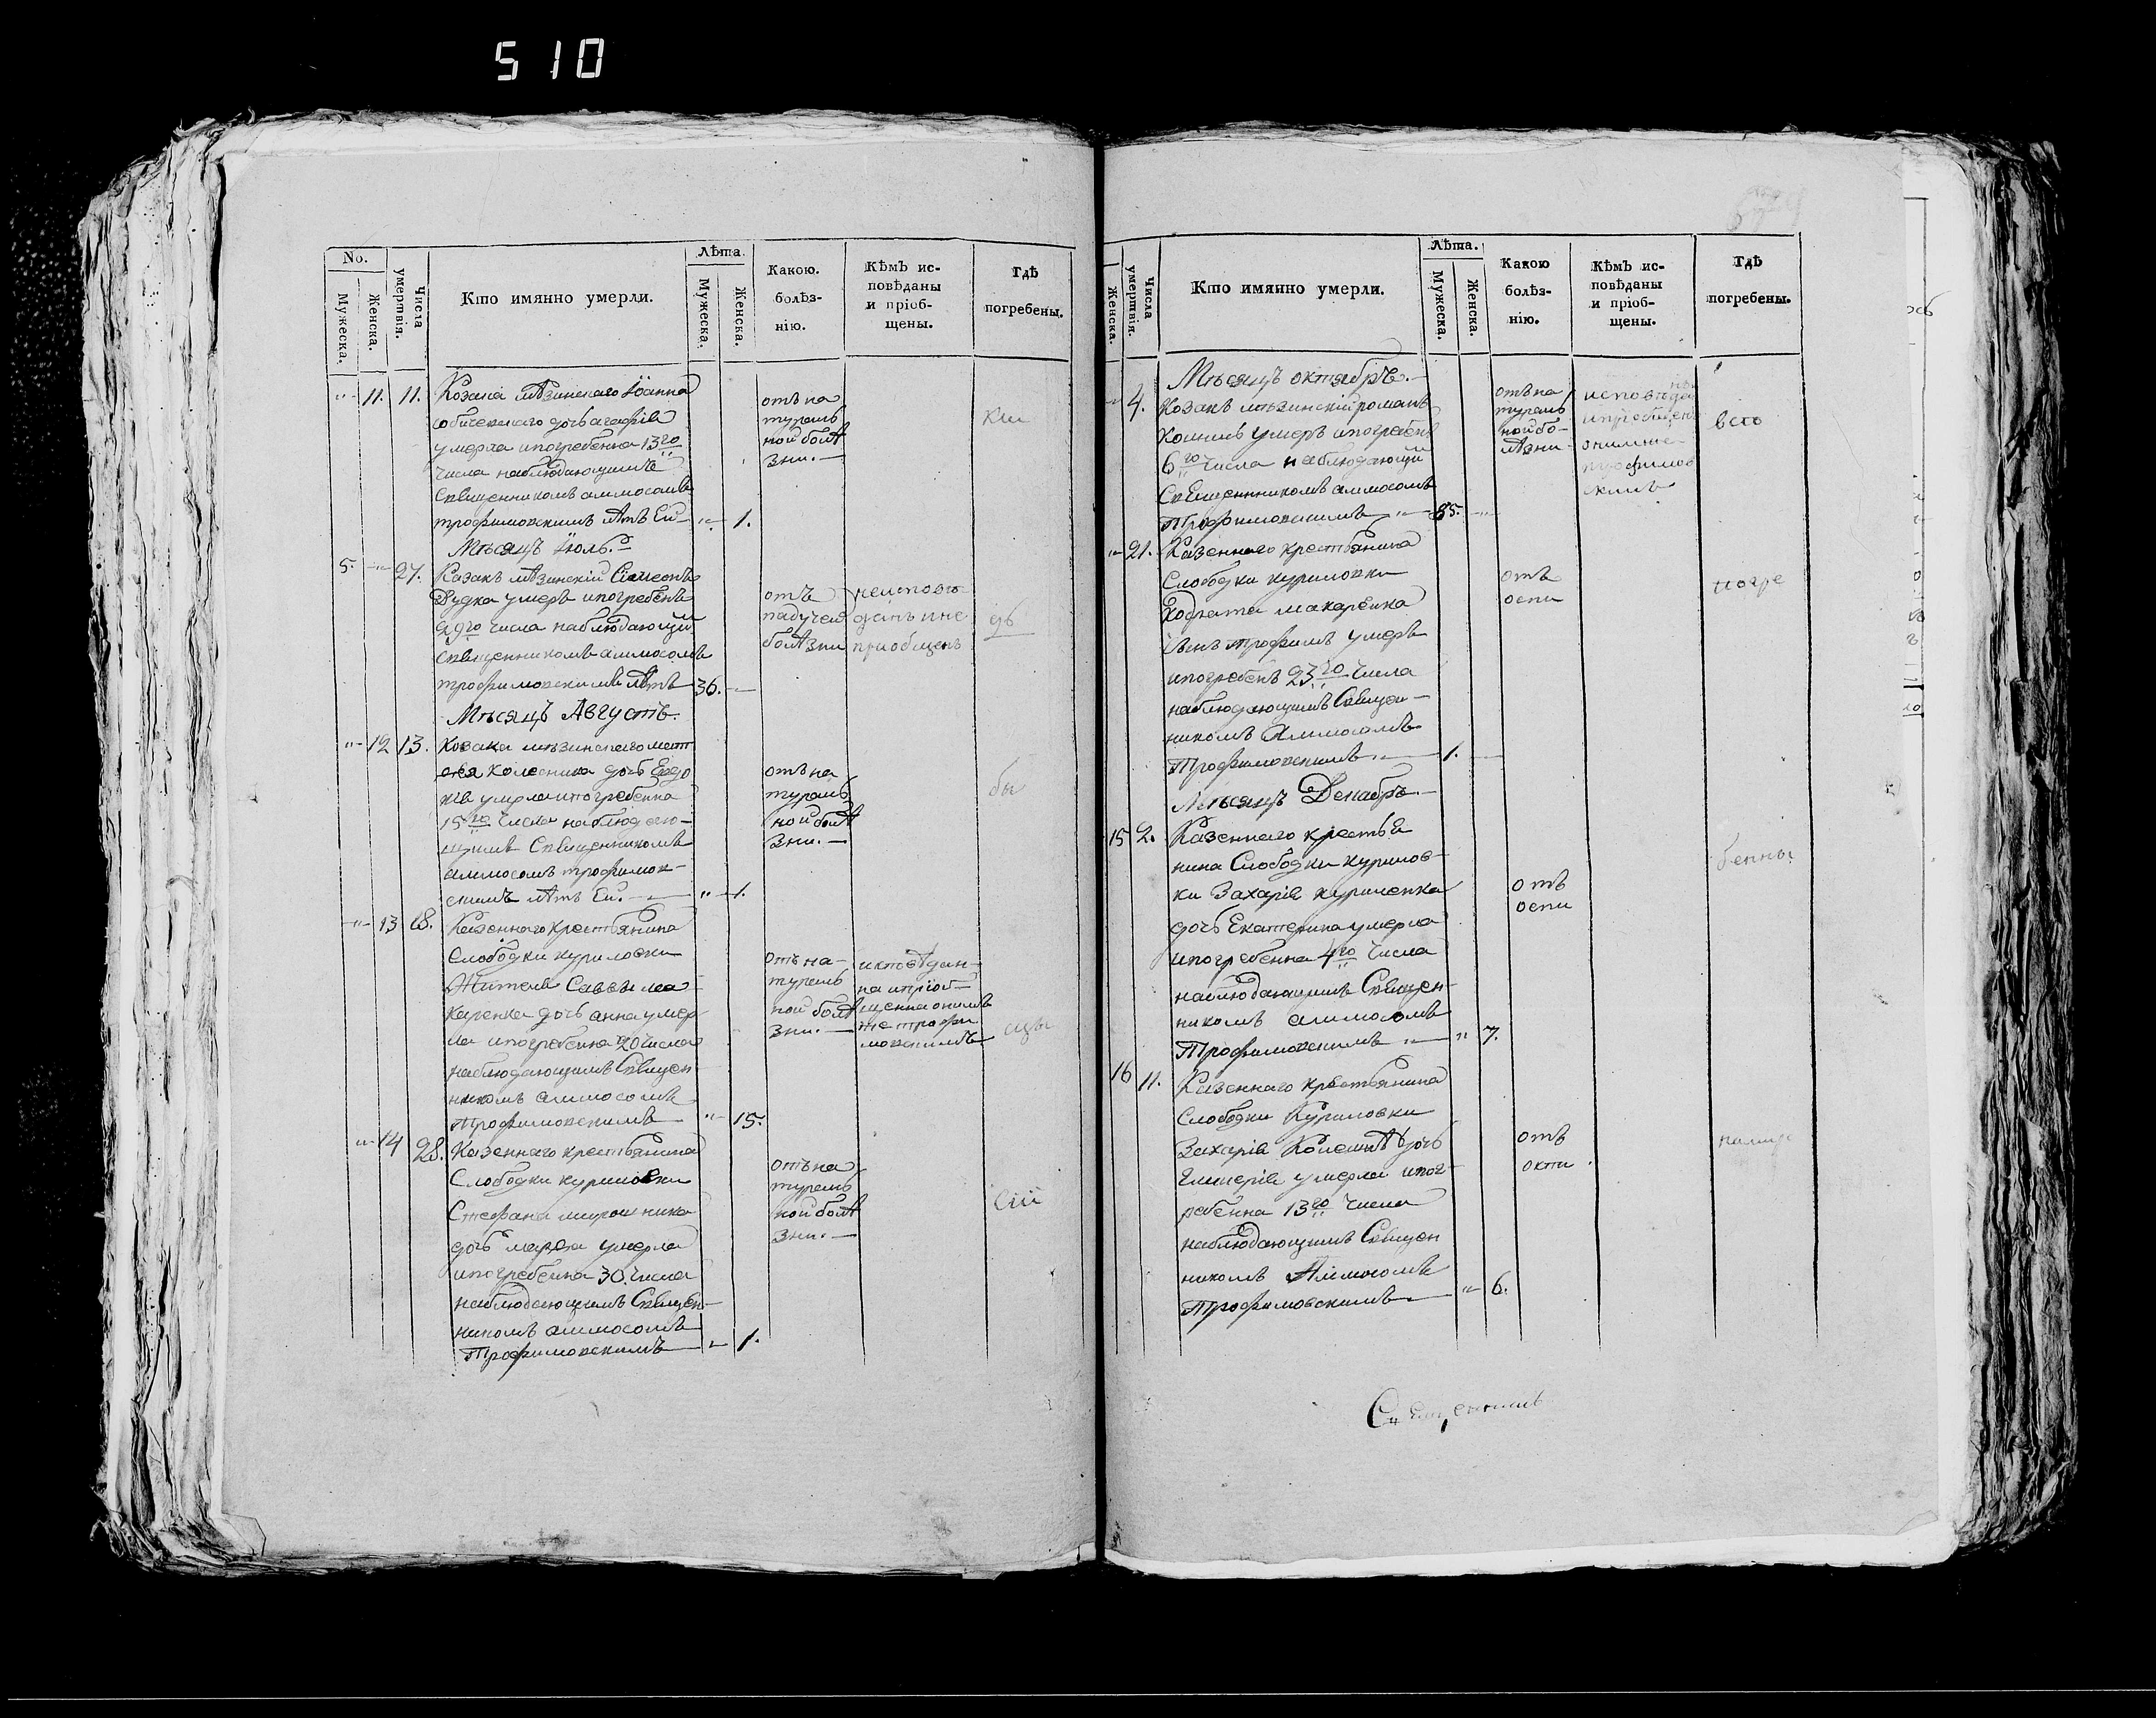 510
No.
Мужеска.
Женска.
Числа умертвія.
Кто имянно умерли.
Лѣта.
Мужеска.
Женска.
Какою. болѣз- нію.
Кѣмъ ис- повѣданы и пріоб- щены.
Гдѣ погребены.
11. 11. Козака мѣзинскаго Іоанна
дочь агафія
умерла ипогребенна 13го
числа наблюдающимъ
Священникомъ аммосомъ
трофимовскимъ лѣтъ Ей 1.
отъ на
тураль
ной болѣ
зни.
Мѣсяцъ Іюль.
5. 27. Казакъ мѣзинскій Сімеонъ
Дудка умеръ ипогребенъ
29го числа наблюдающимъ
священникомъ аммосомъ
трофимовскимъ лѣтъ 36.
отъ
падучей
болѣзни
неисповѣ
данъ ине
пріобщенъ
Мѣсяцъ Августъ.
12 13. Козака мѣзинскаго матт
колесника дочь Евдо
кія умерла ипогребенна
15го числа наблюдаю-
щимъ Священникомъ
аммосомъ трофимов-
скимъ лѣтъ Ей. 1.
отъ на
тураль
ной болѣ
зни.
бы
13 18. Казеннаго крестьянина
Слободки куриловки
Жителя Саввы ма-
каренка дочь анна умер
ла ипогребенна 20 числа
наблюдающимъ Священ-
никомъ аммосомъ
Трофимовскимъ 15.
отъ на-
тураль
ной болѣ
зни.
исповѣдан-
на ипріоб-
щенна онимъ
же трофи
мовскимъ
14 28. Казеннаго крестьянина
Слободки куриловки
Стефана мирошника
дочь марфа умерла
ипогребенна 30. числа
наблюдающимъ Священ-
никомъ аммосомъ
Трофимовскимъ 1.
отъ на
тураль
ной болѣ
зни.
Женска.
Числа умертвія.
Кто имянно умерли.
Лѣта.
Мужеска.
Женска.
Какою болѣз- нію.
Кѣмъ ис- повѣданы и пріоб- щены.
Гдѣ погребены.
Мѣсяцъ октябрь.
4. Козакъ мѣзинскій романъ
умеръ ипогребенъ
6го числа наблюдающи
Священникомъ аммосомъ
Трофимовскимъ 85.
отъ на
тураль
ной бо-
лѣзни
21. Казеннаго крестьянина
Слободки куриловки
Кодрата макаренка
сынъ трофимъ умеръ
ипогребенъ 23го числа
наблюдающимъ Священ-
никомъ Аммосомъ
Трофимовскимъ 1.
отъ
оспи
погре
Мѣсяцъ Декабрь.
15 2. Казеннаго крестья
нина Слободки курилов-
ки Захарія куриленка
дочь Екатерина умерла
ипогребенна 4го числа
наблюдающимъ Священ-
никомъ аммосомъ
Трофимовскимъ 7.
отъ
оспи
бенны
16 11. Казеннаго крестьянина
Слободки Куриловки
Захарія дочь
Гликерія умерла ипог-
ребенна 13го числа
наблюдающимъ Священ
никомъ Аммосомъ
Трофимовскимъ 6.
отъ